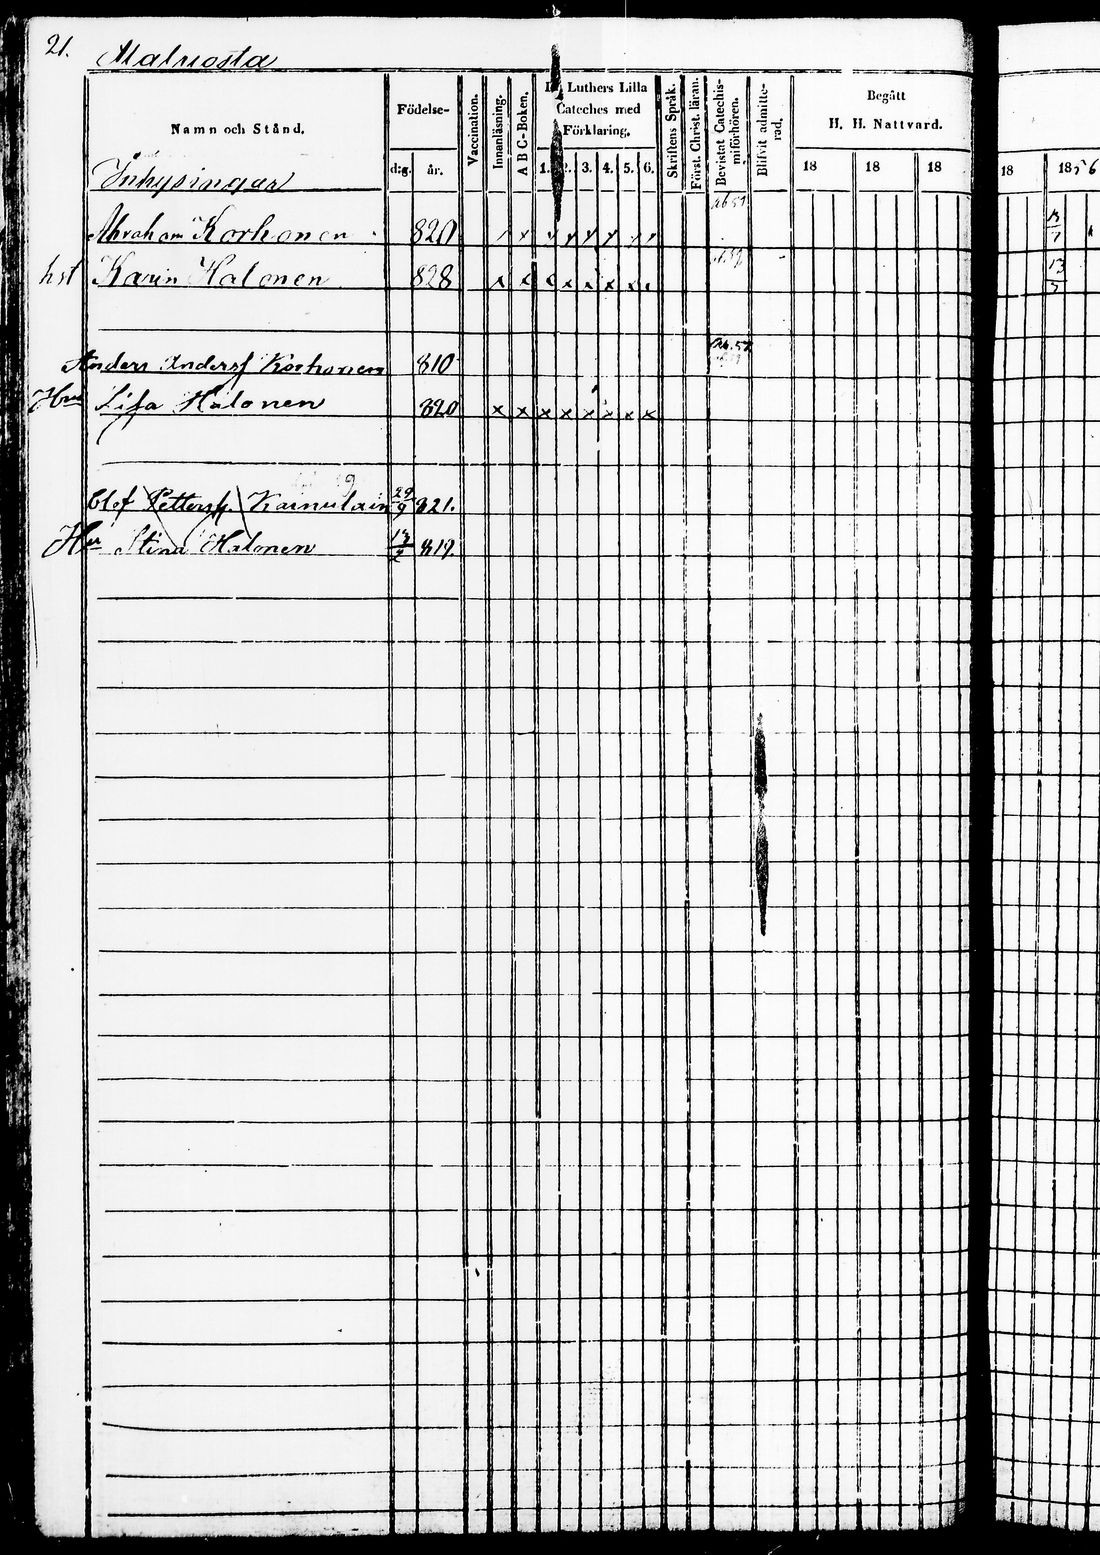 21. Maluosta
Namn och Stånd.
Födelse-
d:g. år.
Vaccination.
Innanläsning.
A B C-Boken.
Luthers Lilla
Cateches med
Förklaring.
1. 2. 3. 4. 5. 6.
Skriftens Språk.
Först. Christ. läran.
Bevistat Catechis-
miförhören.
Blifvit admitte-
rad.
Begått
H. H. Nattvard.
18 18 18 18 1856
Inhysingar
Abraham Korhonen 820 x x x x x x x x
hst Karin Halonen 828 x x x x x x x x 13
Anders Anderss Korhonen 810
Hru Lisa Halonen 820 x x x x x x x x
Olof Petterss. Kainulain 29/9 821.
Hu Stina Halonen 819.